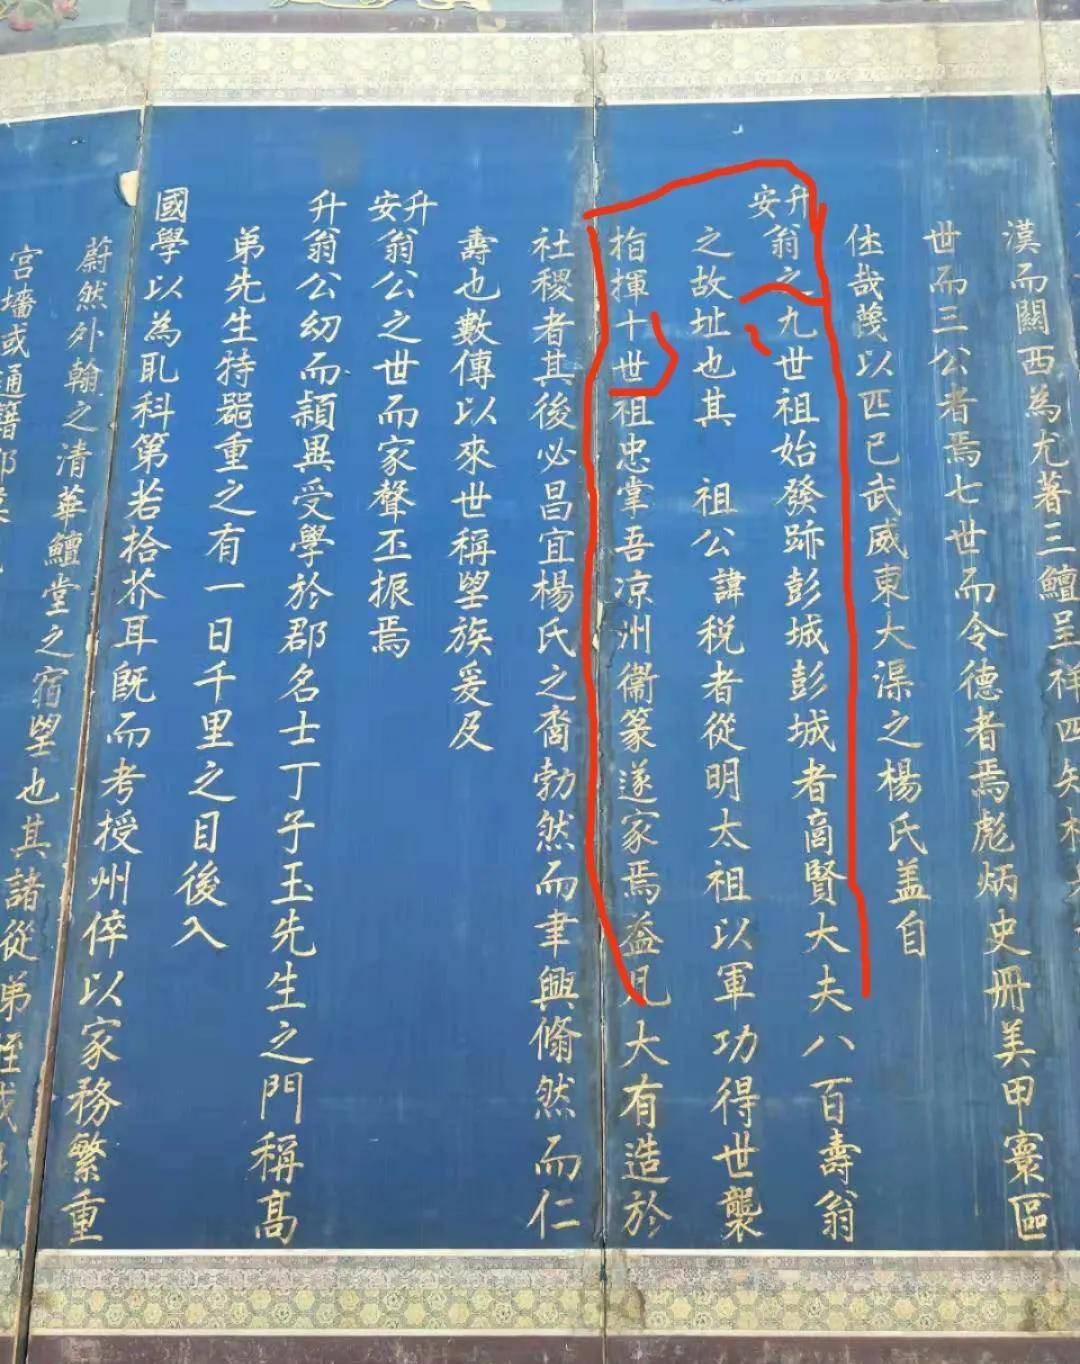 漢而關西為尤著三鱣呈祥四知
世而三公者焉七世而令德者焉彪炳史冊美甲寰區
佳哉蔑以匹已武威東大渠之楊氏蓋自
升安翁之九世祖始發跡彭城彭城者商賢大夫八百壽翁
之故址也其 祖公諱税者從明太祖以軍功得世襲
指揮十世祖忠掌吾凉州衞篆遂家焉益凡大有造於
社稷者其後必昌宜楊氏之裔勃然而聿興翛然而仁
壽也數傳以來世稱望族爰及
升安翁公之世而家聲丕振焉
升翁公幼而穎異受學於郡名士丁子玉先生之門稱高
弟先生特器重之有一日千里之目後入
國學以為取科第若拾芥耳既而考授州倅以家務繁重
蔚然外翰之清華鱣堂之宿望也其諸從弟姪或
宮墻或通籍郎